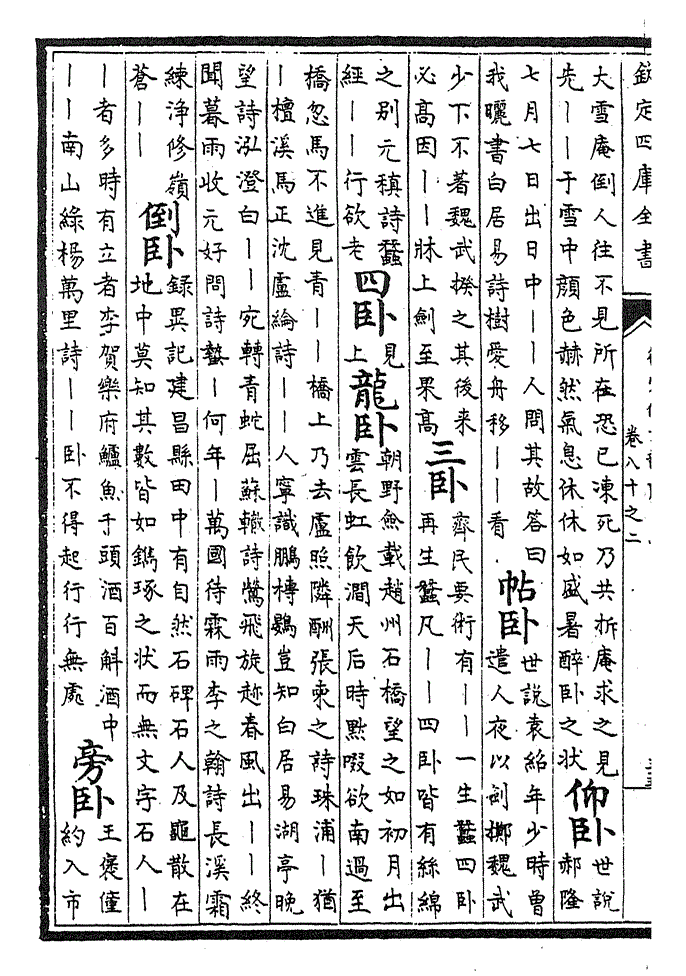 欽定四庫全書
卷八十之二
大雪庵倒人往不見所在恐已凍死乃共拆庵求之見
先——于雪中顔色赫然氣息休休如盛暑醉卧之状
仰卧
世說
郝隆
七月七日出日中——人問其故答曰
我曬書白居易詩樹愛舟移——看
帖卧
世說袁紹年少時曽
遣人夜以劍擲魏武
少下不著魏武揆之其後来
必髙因——牀上劍至果髙
三卧
齊民要術有——一生蠶四卧
再生蠶凡——四卧皆有絲綿
之别元稹詩蠶
經——行欲老
四卧
見
上
龍卧
朝野僉載趙州石橋望之如初月出
雲長虹飲澗天后時黙啜欲南過至
橋忽馬不進見青——橋上乃去盧照隣酬張柬之詩珠浦—猶
—檀溪馬正沈盧綸詩——人寧識鵬摶鷃豈知白居易湖亭晚
望詩泓澄白——宛轉青蛇屈蘇轍詩鶯飛旋趂春風出——終
聞暮雨收元好問詩蟄—何年—萬國待霖雨李之翰詩長溪霜
練浄修嶺
蒼——
倒卧
録異記建昌縣田中有自然石碑石人及龜散在
地中莫知其數皆如鐫琢之状而無文字石人—
—者多時有立者李賀樂府鱸魚千頭酒百斛酒中
——南山綠楊萬里詩——卧不得起行行無處
旁卧
王褒僮
約入市